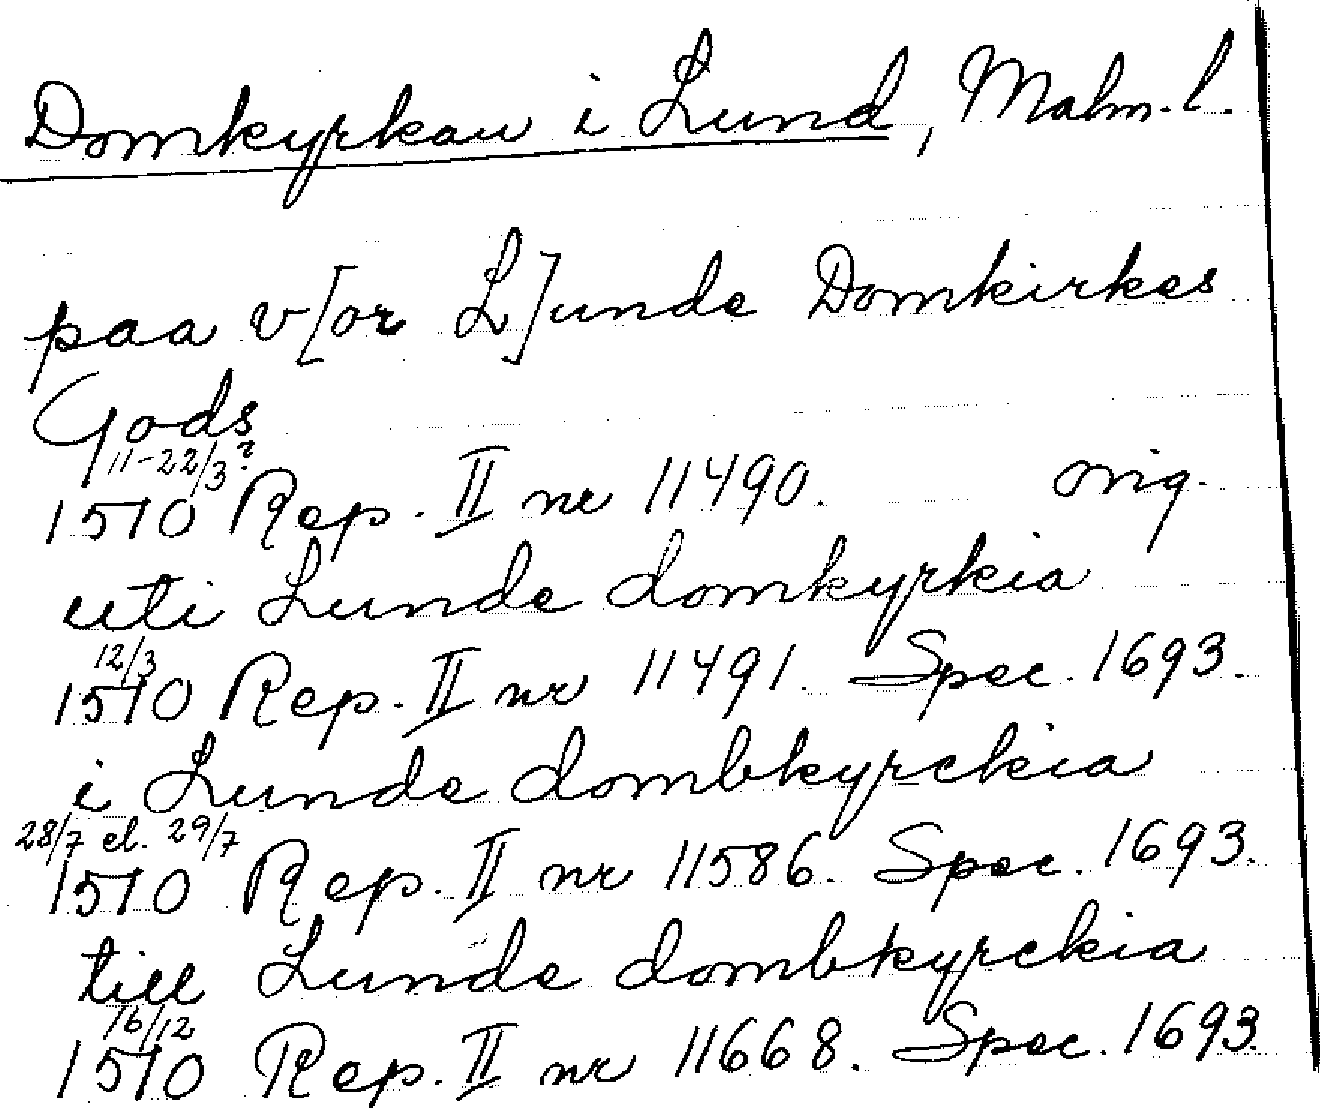 Domkyrkan i Lund, Malm. l.
paa v[or L]unde Domkirkes
Gods
11-22/3?
1510 Rep. II nr 11490. orig.
uti Lunde domkyrkia
12/3
1510 Rep. II nr 11491. Spec. 1693.
i Lunde dombkyrckia
28/7 el. 29/7
1510 Rep. II nr 11586. Spec. 1693.
till Lunde dombkyrckia
16/12
1510 Rep. II nr 11668. Spec. 1693.